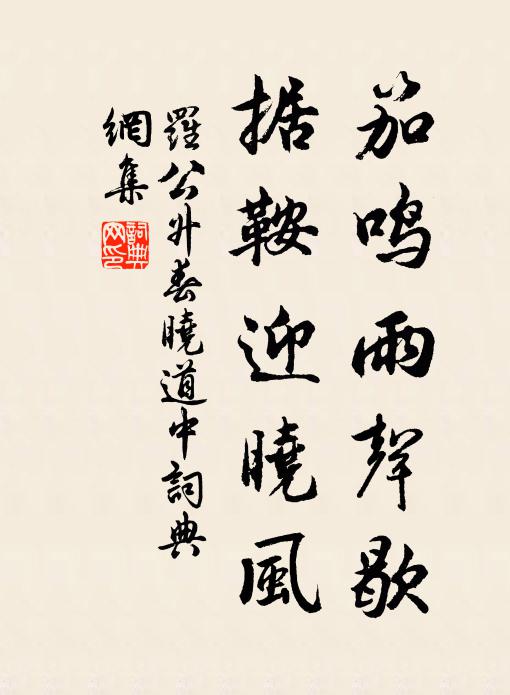 笳鳴雨聲歇
据鞍迎曉風
羅公升春曉道中詞典
網集
詞典
网印